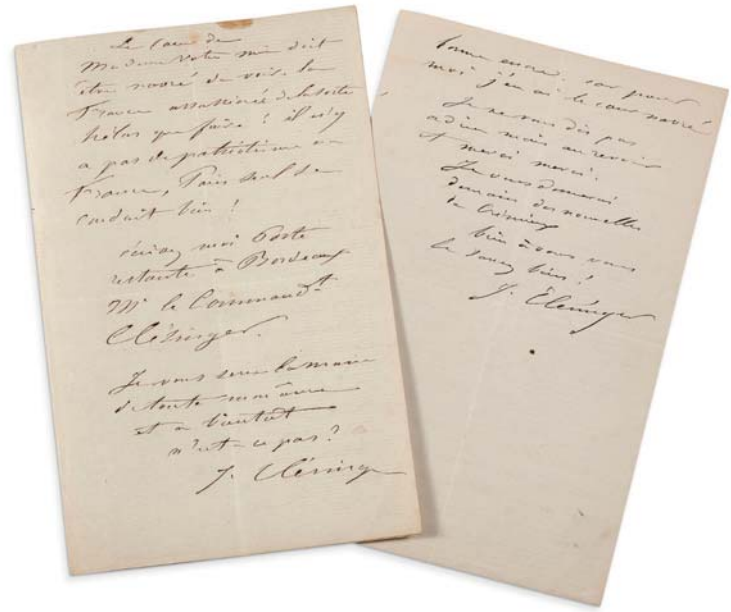 Le Cœur de
Madame votre mère doit
être navré de voir la
France assassinée de la sorte
hélas que faire ! il n'y
a pas de patriotisme en
France, Paris seul se
conduit bien !
écrivez moi Poste
restante à Bordeaux
Mr le Commandt
Clésinger.
Je vous serre la main
de toute mon âme
et à bientôt
n'est-ce pas ?
J. Clésinger
bonne encre. car pour
moi j'en ai le cœur navré
Je ne vous dis pas
adieu mais au revoir
et merci merci.
Je vous donnerai
demain des nouvelles
de Crémieux
bien à vous vous
le savez bien !
J. Clésinger